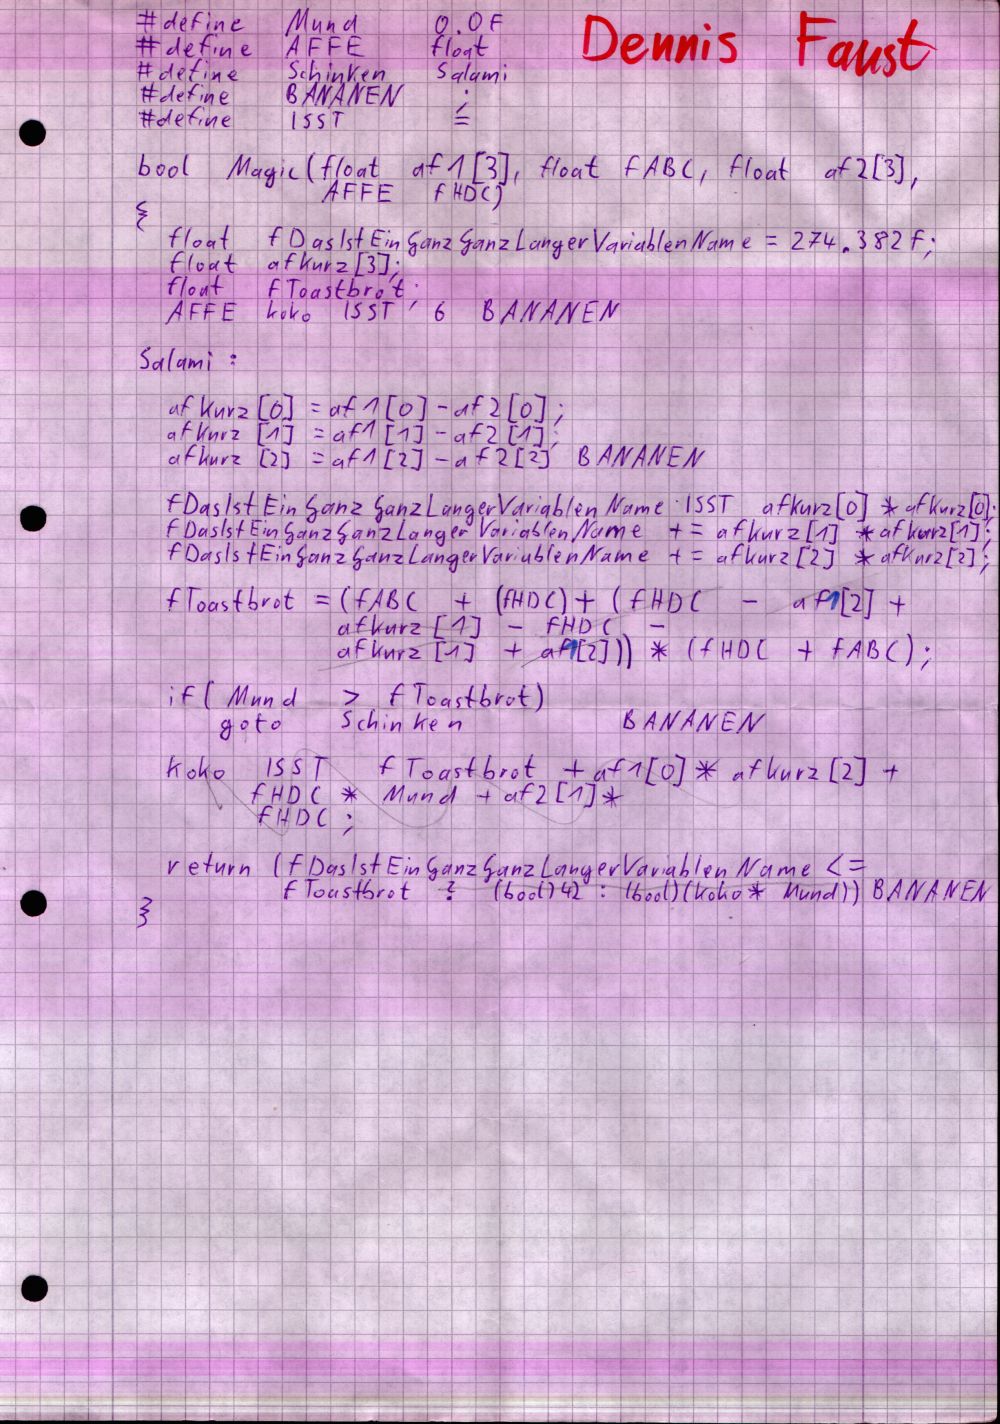 #define Mund 0.0F
Dennis Faust
#define AFFE float
#define Schinken Salami
#define BANANEN ;
#define ISST =
bool Magic(float af1[3], float fABC, float af2[3],
AFFE fHDC)
{
float fDasIstEinGanzGanzLangerVariablenName = 274.382F;
float afkurz[3];
float fToastbrot;
AFFE koko ISST 6 BANANEN
Salami:
afkurz[0] = af1[0] - af2[0];
afkurz[1] = af1[1] - af2[1];
afkurz[2] = af1[2] - af2[2] BANANEN
fDasIstEinGanzGanzLangerVariablenName ISST afkurz[0] * afkurz[0];
fDasIstEinGanzGanzLangerVariablenName += afkurz[1] * afkurz[1];
fDasIstEinGanzGanzLangerVariablenName += afkurz[2] * afkurz[2];
fToastbrot = (fABC + (fHDC) + (fHDC - af1[2] +
afkurz[1] - fHDC -
afkurz[1] + af1[2])) * (fHDC + fABC);
if( Mund > fToastbrot)
goto Schinken BANANEN
koko ISST fToastbrot + af1[0] * afkurz[2] +
fHDC * Mund + af2[1] *
fHDC;
return (fDasIstEinGanzGanzLangerVariablenName <=
fToastbrot ? (bool)42 : (bool)(koko * Mund)) BANANEN
}